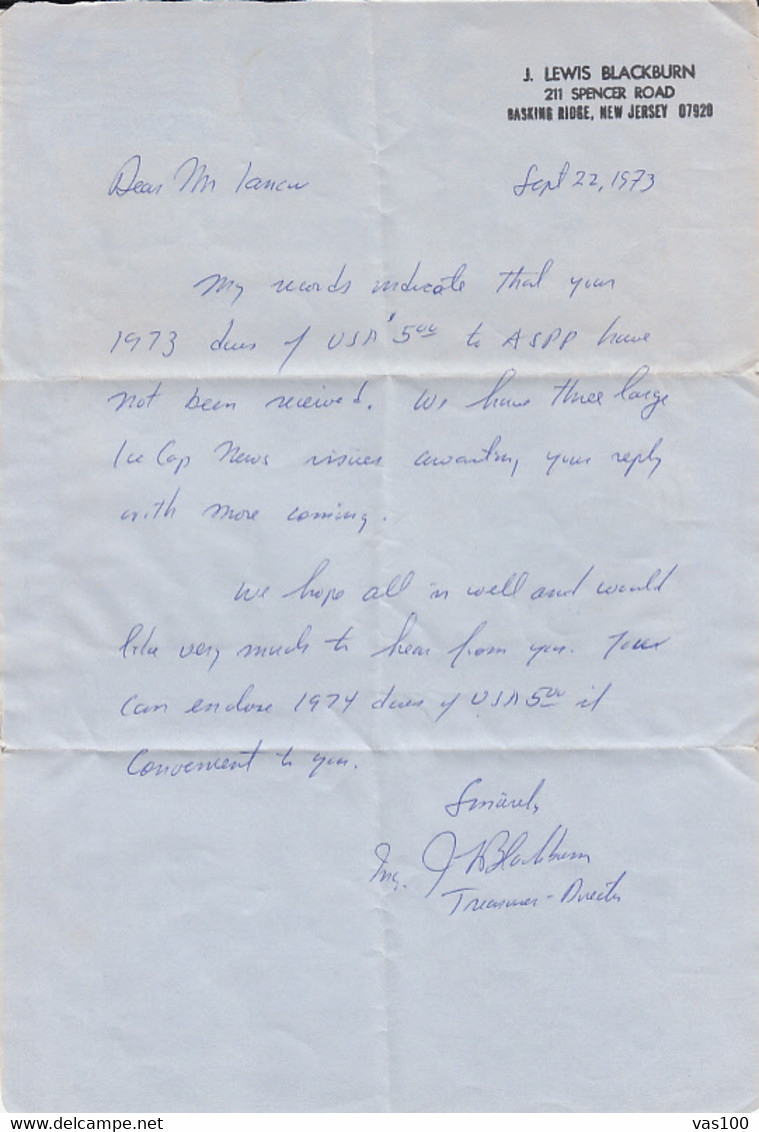 J. LEWIS BLACKBURN
211 SPENCER ROAD
BASKING RIDGE, NEW JERSEY 07920
Dear Mr Iancu
Sept 22, 1973
My records indicate that your
1973 dues of USA $5.00 to ASPP have
not been received. We have three large
Ice Cap News issues awaiting your reply
with more coming.
We hope all is well and would
like very much to hear from you. You
can enclose 1974 dues of USA 5.00 if
convenient to you.
Sincerely
J L Blackburn
Treasurer - Director
delcampe.net
vas100